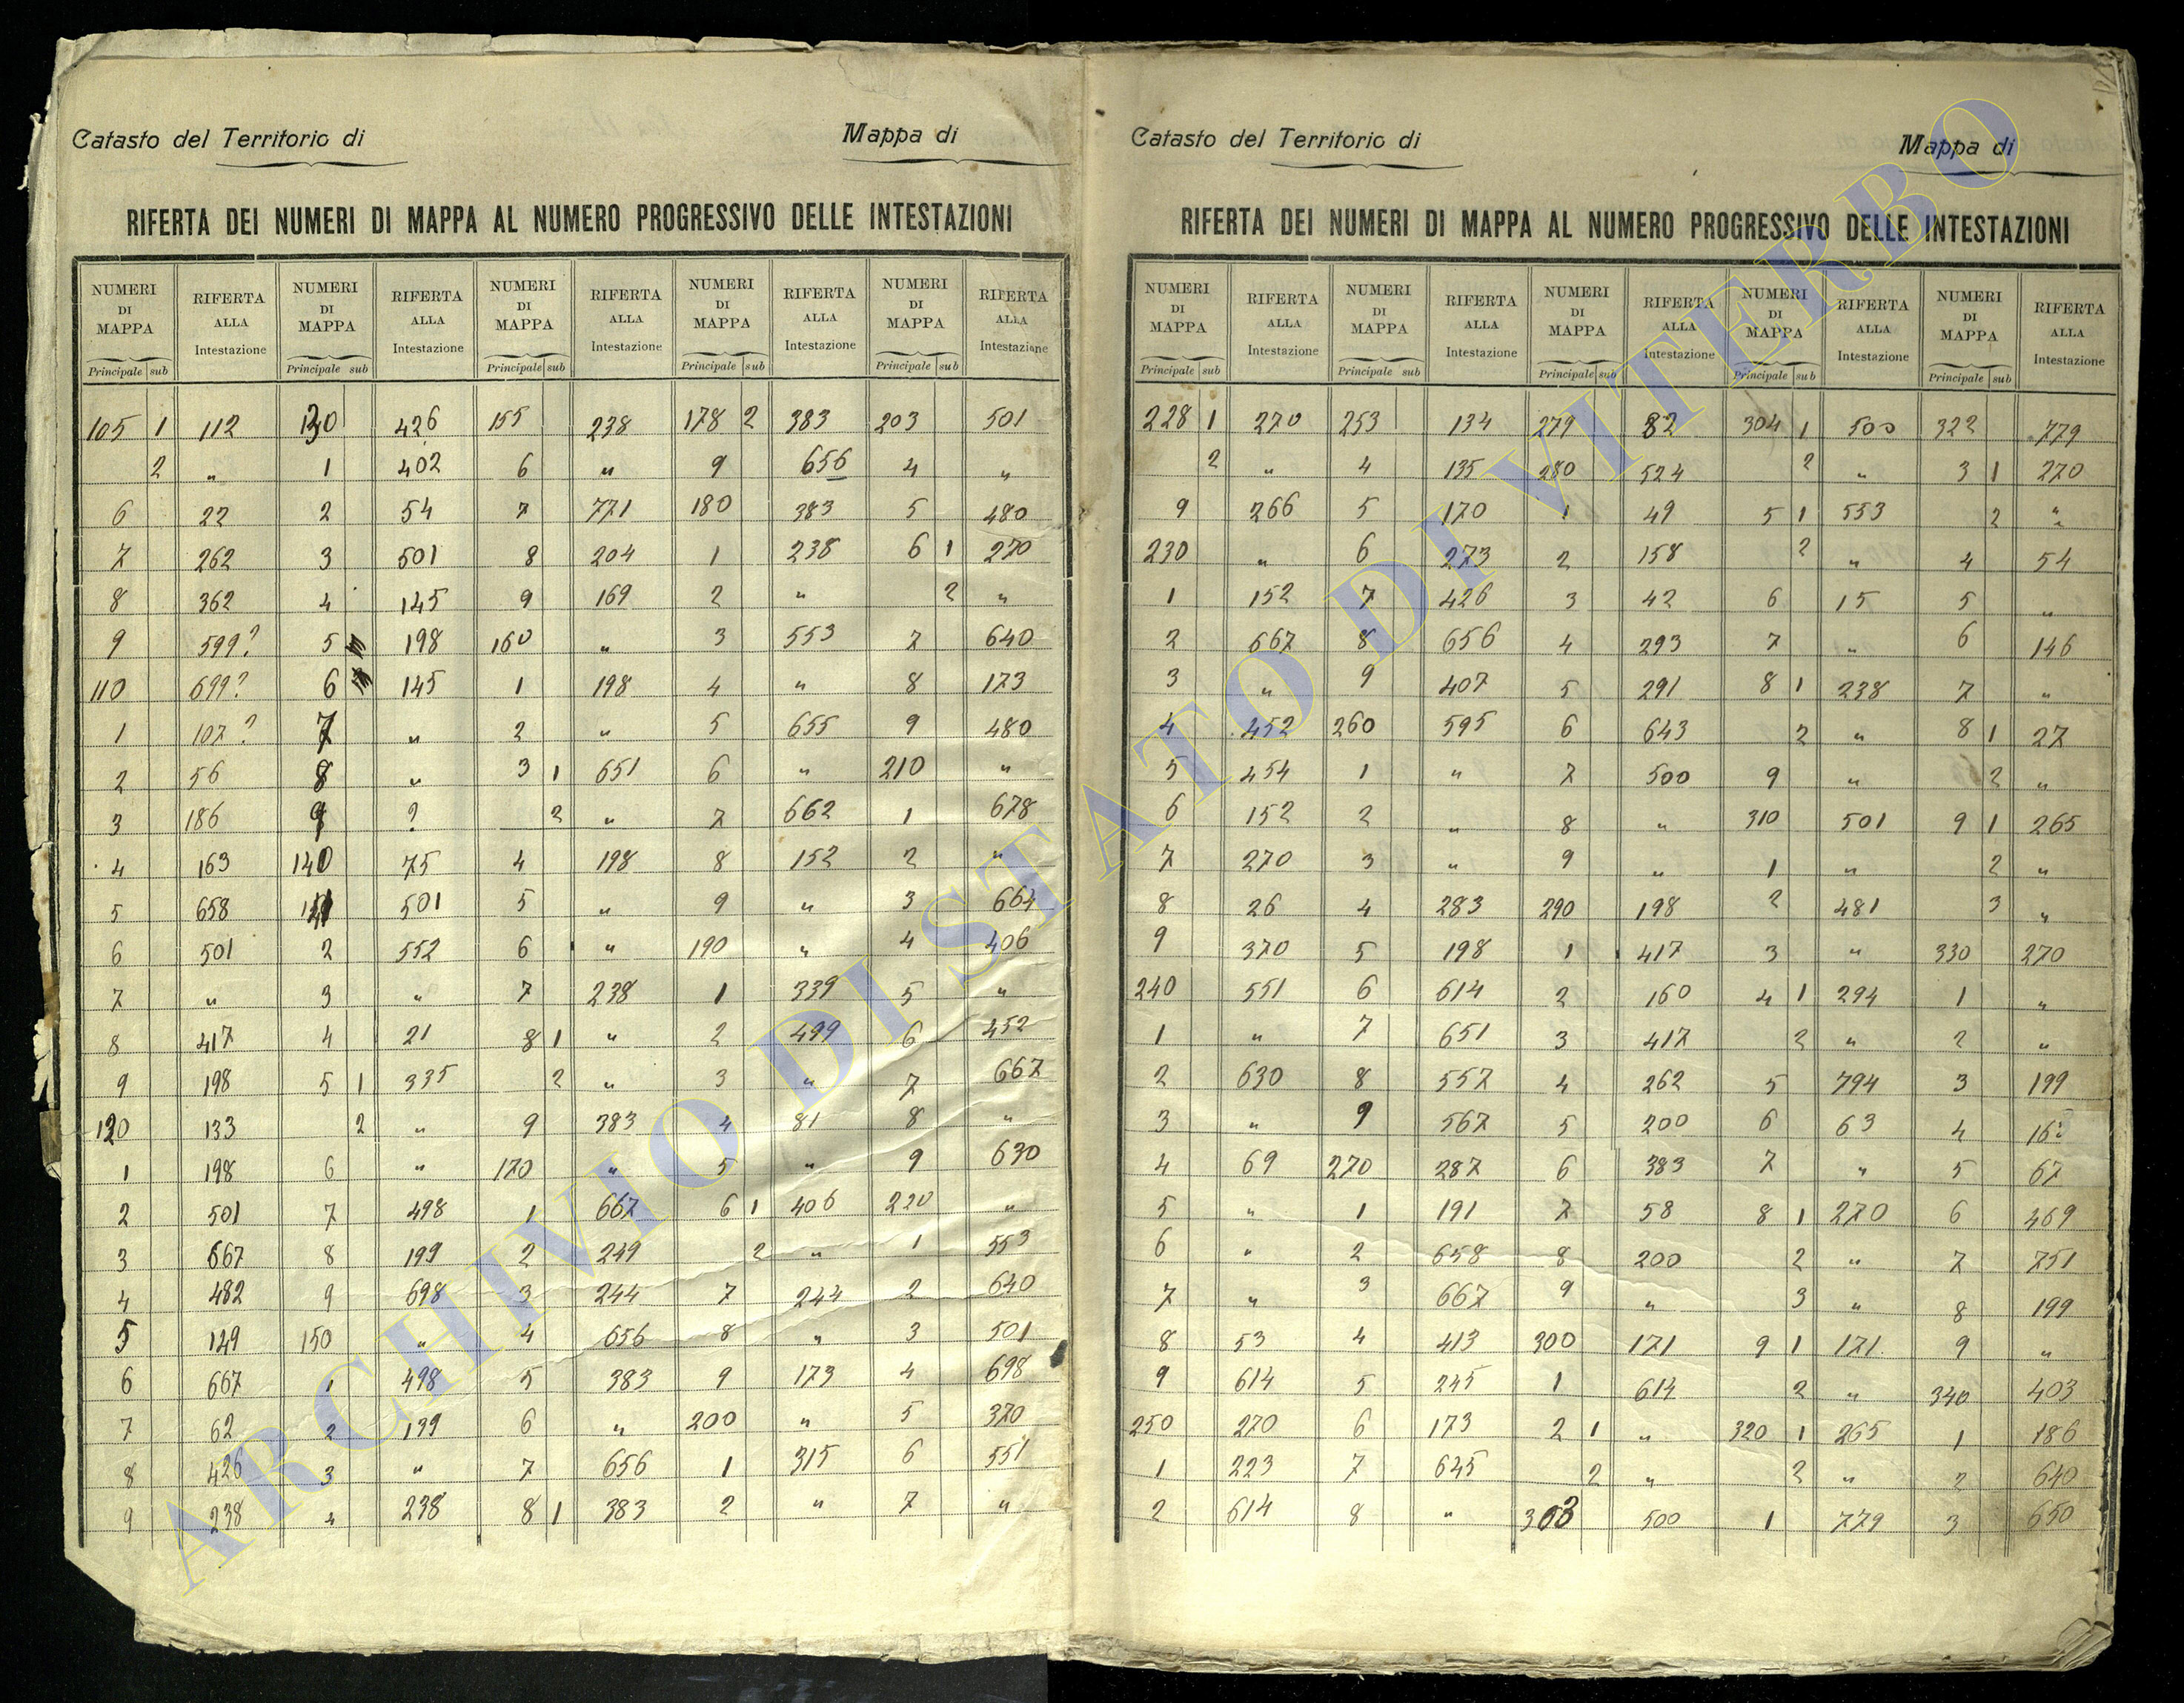 Catasto del Territorio di Mappa di
RIFERTA DEI NUMERI DI MAPPA AL NUMERO PROGRESSIVO DELLE INTESTAZIONI
NUMERI DI MAPPA RIFERTA ALLA Intestazione NUMERI DI MAPPA RIFERTA ALLA Intestazione NUMERI DI MAPPA RIFERTA ALLA Intestazione NUMERI DI MAPPA RIFERTA ALLA Intestazione NUMERI DI MAPPA RIFERTA ALLA Intestazione
Principale sub Principale sub Principale sub Principale sub Principale sub
105 1 112 130 426 155 238 178 2 383 203 501
2 " 1 402 6 " 9 656 4 "
6 22 2 54 7 771 180 383 5 480
7 262 3 501 8 204 1 238 6 1 270
8 362 4 145 9 169 2 " 2 "
9 599? 5 198 160 " 3 553 7 640
110 699? 6 145 1 198 4 " 8 173
1 107? 7 " 2 " 5 655 9 480
2 56 8 " 3 1 651 6 " 210 "
3 186 9 ? 2 " 7 662 1 678
4 163 140 75 4 198 8 152 2 "
5 658 141 501 5 " 9 " 3 664
6 501 2 552 6 " 190 " 4 406
7 " 3 " 7 238 1 339 5 "
8 417 4 21 8 1 " 2 499 6 452
9 198 5 1 335 2 " 3 " 7 667
120 133 2 " 9 383 4 81 8 "
1 198 6 " 170 " 5 " 9 630
2 501 7 498 1 667 6 1 406 220 "
3 667 8 199 2 249 2 " 1 553
4 482 9 698 3 244 7 244 2 640
5 149 150 " 4 656 8 " 3 501
6 667 1 498 5 383 9 173 4 698
7 62 2 199 6 " 200 " 5 370
8 426 3 " 7 656 1 315 6 551
9 238 4 238 8 1 383 2 " 7 "
Catasto del Territorio di Mappa di
RIFERTA DEI NUMERI DI MAPPA AL NUMERO PROGRESSIVO DELLE INTESTAZIONI
NUMERI DI MAPPA RIFERTA ALLA Intestazione NUMERI DI MAPPA RIFERTA ALLA Intestazione NUMERI DI MAPPA RIFERTA ALLA Intestazione NUMERI DI MAPPA RIFERTA ALLA Intestazione NUMERI DI MAPPA RIFERTA ALLA Intestazione
Principale sub Principale sub Principale sub Principale sub Principale sub
228 1 270 253 134 279 82 304 1 500 322 779
2 " 4 135 280 524 2 " 3 1 270
9 266 5 170 1 49 5 1 553 2 "
230 " 6 273 2 158 2 " 4 54
1 152 7 426 3 42 6 15 5 "
2 667 8 656 4 293 7 " 6 146
3 " 9 407 5 291 8 1 238 7 "
4 452 260 595 6 643 2 " 8 1 27
5 454 1 " 7 500 9 " 2 "
6 152 2 " 8 " 310 501 9 1 265
7 270 3 " 9 " 1 " 2 "
8 26 4 283 290 198 2 481 3 "
9 370 5 198 1 417 3 " 330 270
240 551 6 614 2 160 4 1 294 1 "
1 " 7 651 3 417 2 " 2 "
2 630 8 557 4 262 5 794 3 199
3 " 9 567 5 200 6 63 4
4 69 270 287 6 383 7 " 5 67
5 " 1 191 7 58 8 1 270 6 469
6 " 2 658 8 200 2 " 7 751
7 " 3 667 9 " 3 " 8 199
8 53 4 413 300 171 9 1 171 9 "
9 614 5 245 1 614 2 " 340 403
250 270 6 173 2 1 " 320 1 265 1 186
1 223 7 645 2 " 2 " 2 640
2 614 8 " 303 500 1 779 3 650
ARCHIVIO DI STATO DI VITERBO